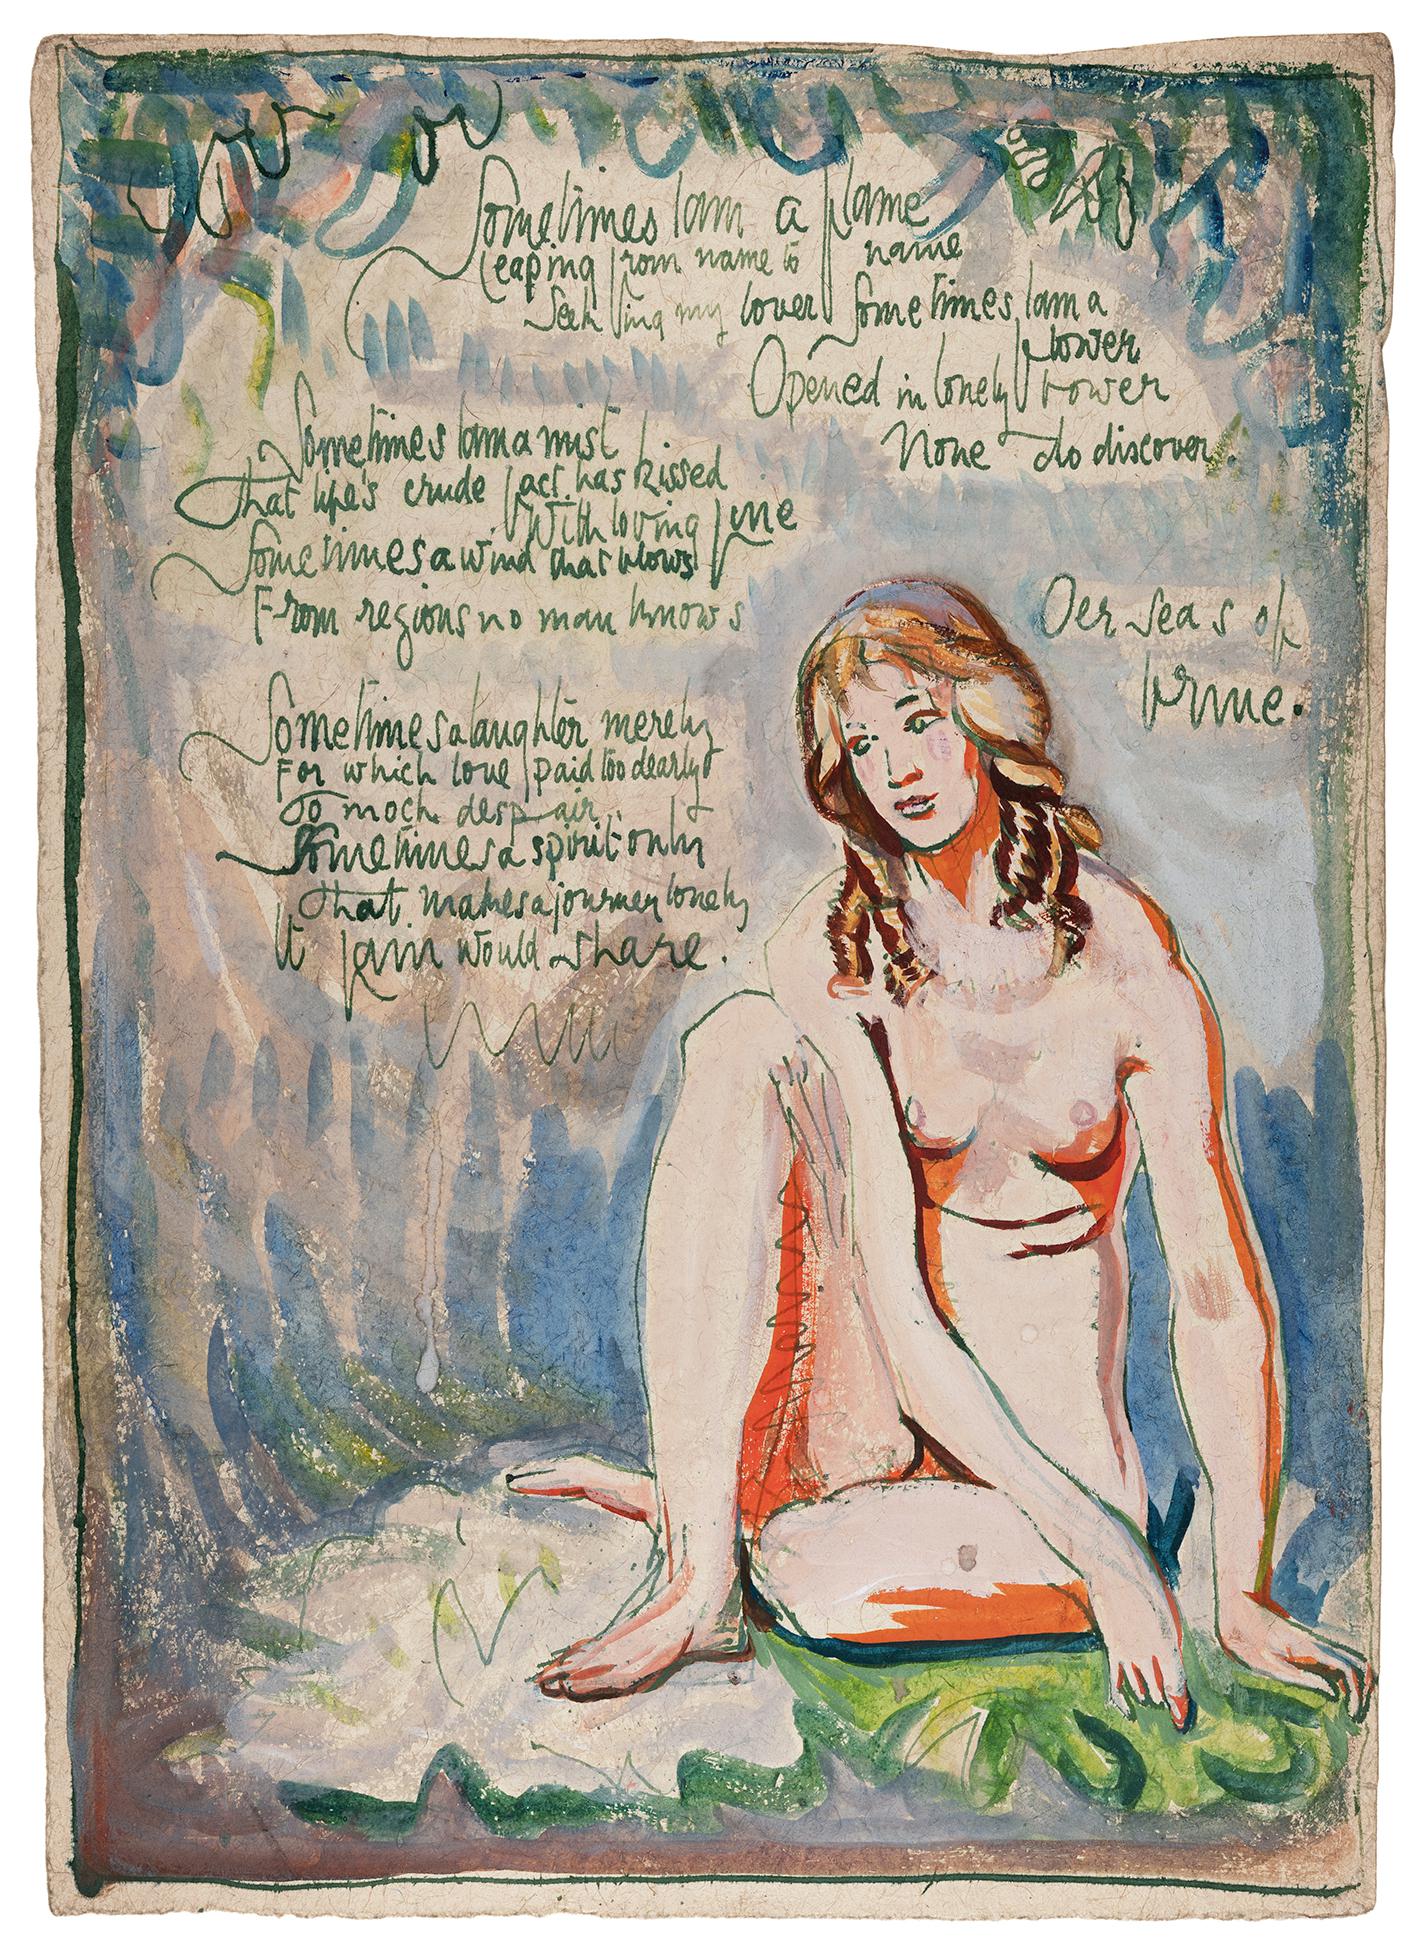 Sometimes I am a flame
Leaping from name to name
Seeking my lover Sometimes I am a
flower
Opened in lonely bower
None do discover.
Sometimes I am a mist
That life's crude fact has kissed
With loving fine
Sometimes a wind that blows
From regions no man knows
Oer seas of
brine.
Sometimes a laughter merely
For which love paid too dearly
To moch despair.
Sometimes a spirit only
That makes a journey lonely
It fain would share.